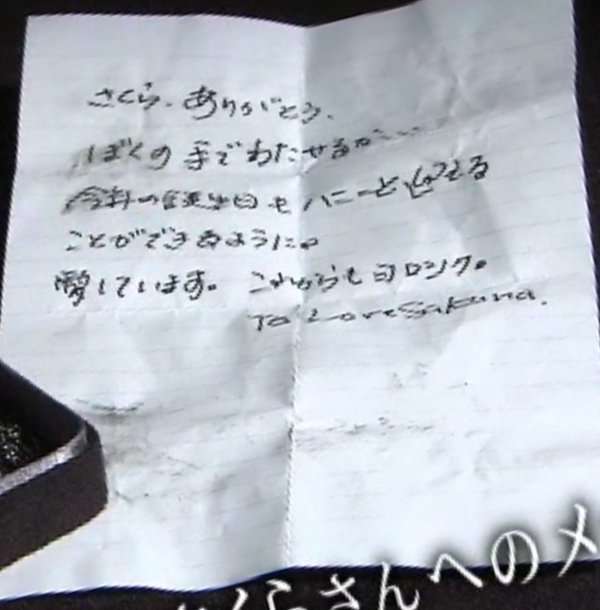 さくら、ありがとう、
ぼくの手でわたせるか……
今年の誕生日もハニーと迎える
ことができるように。
愛しています。これからも
To Love Sakura.
くらさんへのメ